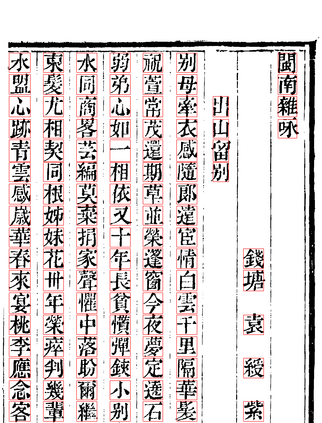 閩南雜咏
錢塘袁綬紫
出山留別
別母牽衣感隨郎遠宦情白雲千里隔華髮
祝萱常茂還期草並榮蓬窗今夜夢定遶石
弱弟心如一相依又十年長貧慣彈鋏小別
水同商畧芸編莫棄捐家聲懼中落盼爾繼
束髮尤相契同根姊妹花卅年榮瘁判幾輩
水盟心跡青雲感歲華春來宴桃李應念客